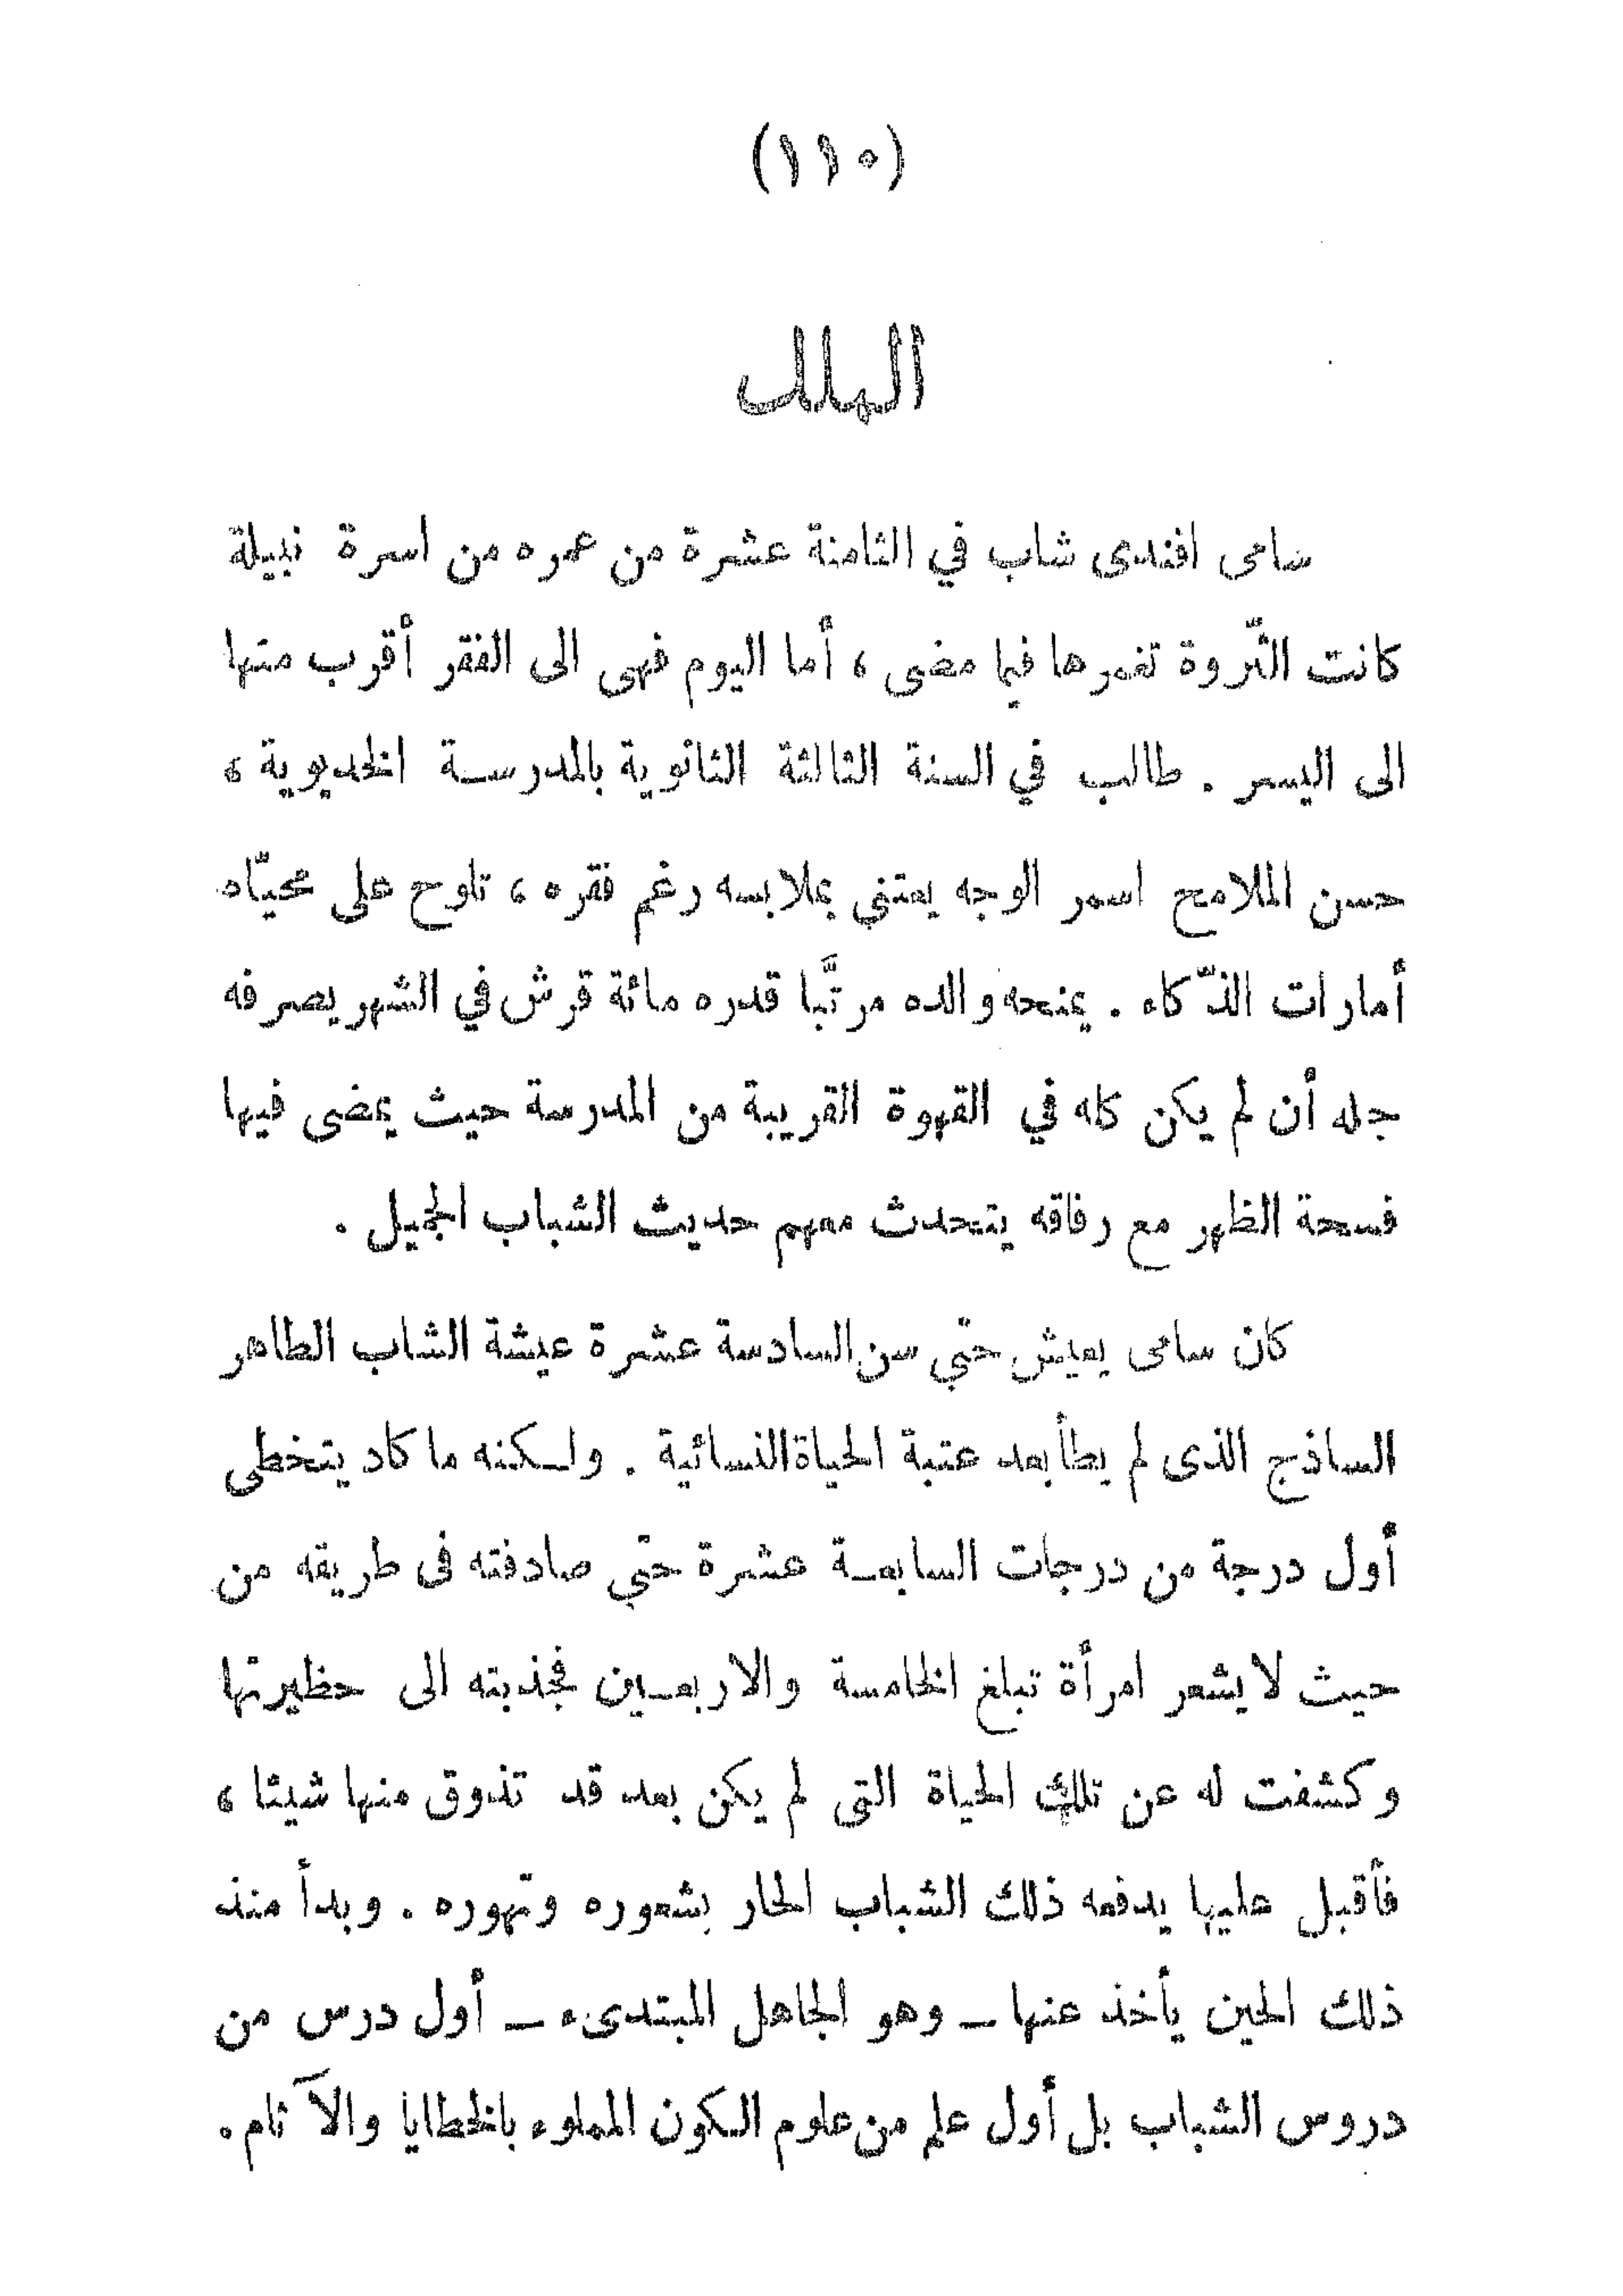 (١١٠)
الهلك
سامى افندى شاب في الثامنة عشرة من عمره من اسرة نبيلة
كانت الثّروة تغمرها فيما مضى ، أما اليوم فهى الى الفقر أقرب منها
الى اليسر . طالب في السنة الثالثة الثانوية بالمدرسة الخديوية ،
حسن الملامح اسمر الوجه يعتني بملابسه رغم فقره ، تلوح على محيّاه
أمارات الذّكاء . يمنحه والده مرتَّبا قدره مائة قرش في الشهر يصرفه
جله أن لم يكن كله في القهوة القريبة من المدرسة حيث يمضى فيها
فسحة الظهر مع رفاقه يتحدث معهم حديث الشباب الجميل .
كان سامى يعيش حتي سن السادسة عشرة عيشة الشاب الطاهر
الساذج الذى لم يطأ بعد عتبة الحياة النسائية . ولكنه ما كاد يتخطى
أول درجة من درجات السابعة عشرة حتي صادفته فى طريقه من
حيث لا يشعر امرأة تبلغ الخامسة والاربعين فجذبته الى حظيرتها
وكشفت له عن تلك الحياة التى لم يكن بعد قد تذوق منها شيئا ،
فأقبل عليها يدفعه ذلك الشباب الحار بشعوره وتهوره . وبدأ منذ
ذلك الحين يأخذ عنها ـ وهو الجاهل المبتدىء ـ أول درس من
دروس الشباب بل أول علم من علوم الكون المملوء بالخطايا والآثام .